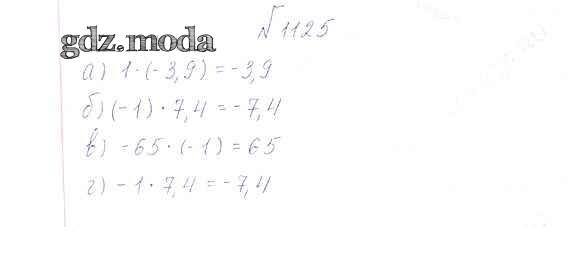 №1125
gdz.moda
а) 1·(-3,9) = -3,9
б) (-1) · 7,4 = -7,4
в) -65 · (-1) = 65
г) -1 · 7,4 = -7,4